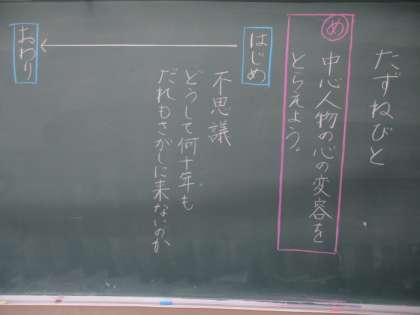 たずねびと
め
中心人物の心の変容を
とらえよう。
はじめ
不思議
どうして何十年も
だれもさがしに来ないのか
おわり